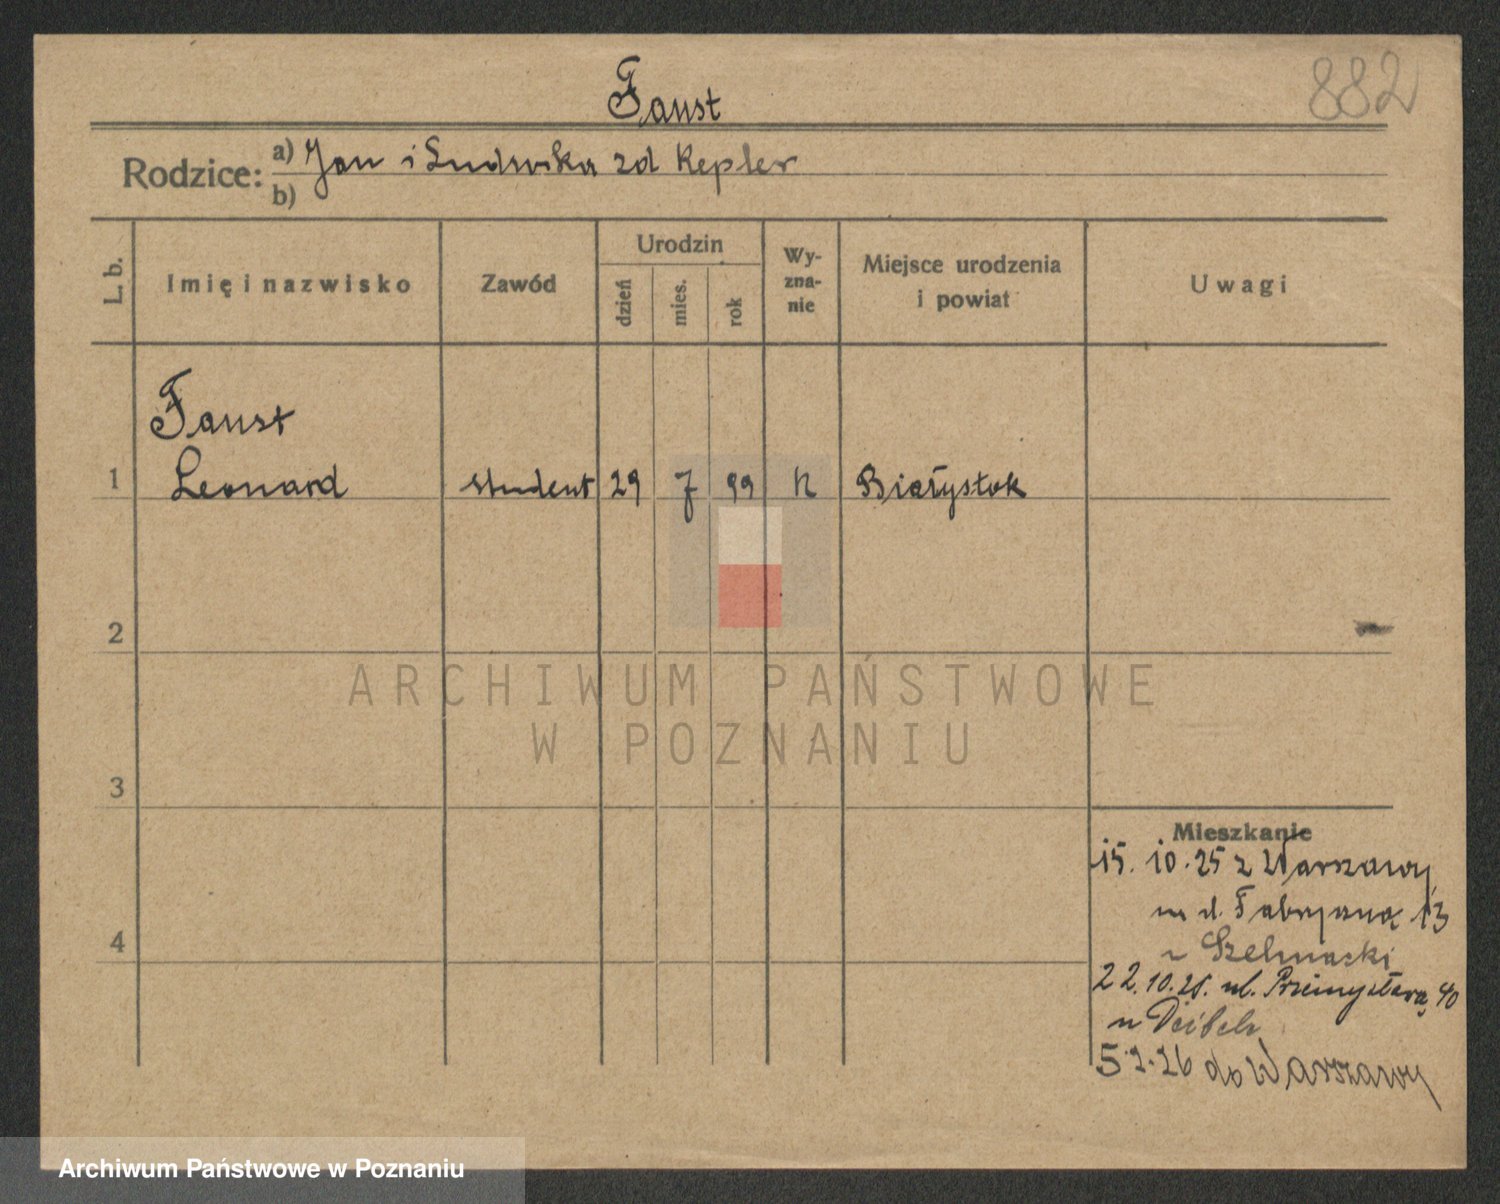 882
Faust
Rodzice: a) Jan i Ludwika zd Kepler
b)
L. b. Imię i nazwisko Zawód Urodzin dzień mies. rok Wyznanie Miejsce urodzenia i powiat Uwagi
Faust
1 Leonard student 29 7 99 k Białystok
2
3
4
Mieszkanie
15. 10. 25 z Warszawy
13
22. 10. 25. ul. Przemysława 40
u Deibel
5.2.26 do Warszawy
ARCHIWUM PAŃSTWOWE
W POZNANIU
Archiwum Państwowe w Poznaniu